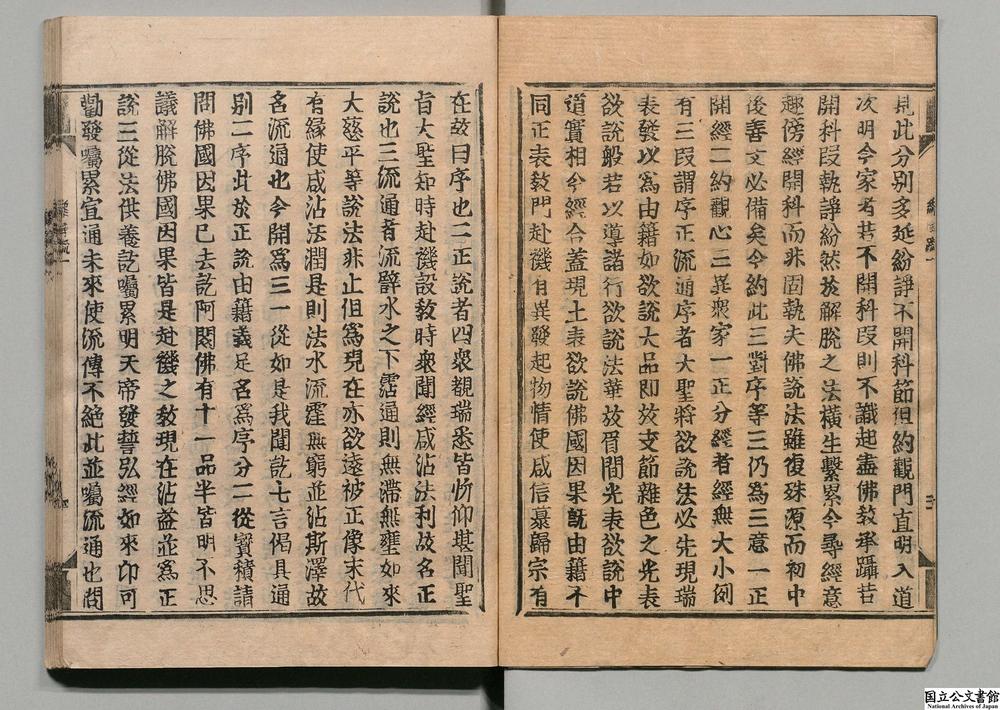 見此分別多延紛諍不開科節但約觀門直明入道
次明今家者若不開科段則不識起盡佛教承躡若
開科段執諍紛然於解脫之法橫生繫累今尋經意
趣傍經開科而非固執夫佛說法雖復殊源而初中
後善文必備矣今約此三對序等三仍為三意一正
開經二約觀心三異衆家一正分經者經無大小例
有三段謂序正流通序者大聖將欲說法必先現瑞
表發以為由籍如欲說大品即放支節雜色之光表
欲說般若以導諸行欲說法華放眉間光表欲說中
道實相今經合蓋現土表欲說佛國因果旣由籍不
同正表教門赴機有異發起物情使咸信慕歸宗有
在故曰序也二正說者四衆覩瑞悉皆忻仰堪聞聖
旨大聖知時赴機設教時衆聞經咸沾法利故名正
說也三流通者流譬水之下霑通則無滯無壅如來
大慈平等說法非止但為現在亦欲遠被正像末代
有緣使咸沾法潤是則法水流霔無窮並沾斯澤故
名流通也今開為三一從如是我聞訖七言偈具通
別二序此於正說由籍義足名為序分二從寶積請
問佛國因果已去訖阿閦佛有十一品半皆明不思
議解脫佛國因果皆是赴機之教現在沾益並為正
說三從法供養訖囑累明天帝發誓弘經如來印可
勸發囑累宣通未來使流傳不絕此並囑流通也問
国立公文書館
National Archives of Japan